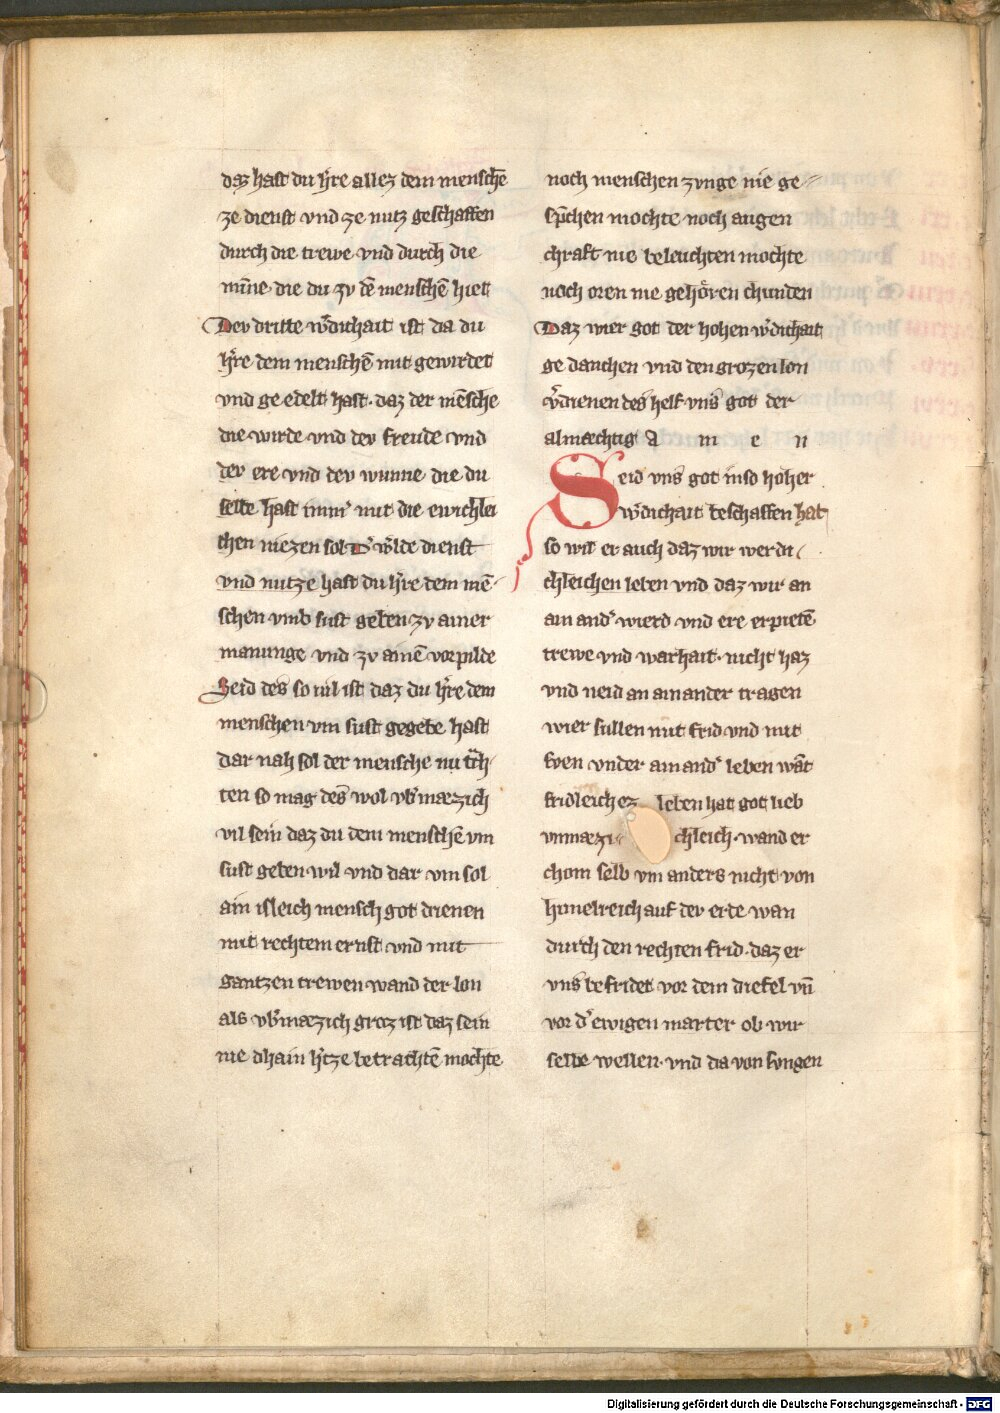 daz hast du hˀre allez dem menschē
ze dienst vnd ze nutz geschaffen
durch die trewe vnd durch die
minne die du zv dē menschē hiet
Dev dritte wˀdichait ist da du
hˀre dem menschē mit gewirdet
vnd ge edelt hast· daz der mēsche
die wirde vnd dev freude vnd
dev ere vnd dev wunne die du
selbe hast immˀ mit die ewichlei
chen niezen sol· Dˀ wˀlde dienst
vnd nutze hast du hˀre dem mē
schen vmb sust geben zv ainer
manunge vnd zv ainē vorpilde
Seid des so vil ist daz du hˀre dem
menschen vm sust gegebē hast
dar nah sol der mensche nu trah
ten so mag des wol vbˀmæzich
vil sein daz du dem menschē vm
sust geben wil vnd dar vm sol
ain isleich mensch got dienen
mit rechtem ernst vnd mit
gantzen trewen wand der lon
als vbˀmæzich groz ist daz sein
nie dhain hˀtze betrachtē mochte
noch menschen zvnge nie ge
sprechen mochte noch augen
chraft nie beleuchten mochte
noch oren nie gehören chunden
Daz wier got der hohen wˀdichait
ge danchen vnd den grozen lon
vˀdienen des helf vns got der
almæchtig A m e n
Seid vns got in so hoher
wˀdichait beschaffen hat
so wil er auch daz wir werdi
chleichen leben vnd daz wir an
ain andˀ wierd vnd ere erpietē
trewe vnd warhait· nicht haz
vnd neid an ain ander tragen
wier sullen mit frid vnd mit
sven vnder ain andˀ leben want
fridleich ez leben hat got lieb
vnmæzi chleich· wand er
chom selb vm anders nicht von
himelreich auf dev erde wan
durch den rechten frid· daz er
vns befridet vor dem diefel vn̄
vor dˀ ewigen marter ob wir
selbe wellen· vnd da von svngen
Digitalisierung gefördert durch die Deutsche Forschungsgemeinschaft - DFG